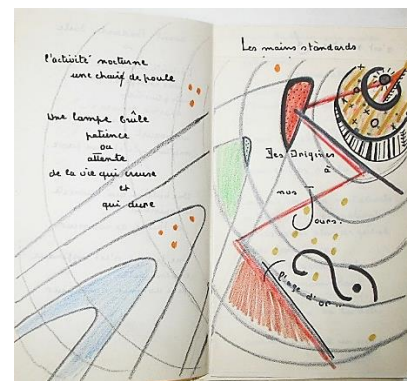 l'activité nocturne
une chair de poule
Une lampe brûle
patience
ou
attente
de la vie qui creuse
et
qui dure
Les mains stàndards
Des Origines
à
nos
Jours.
d'or